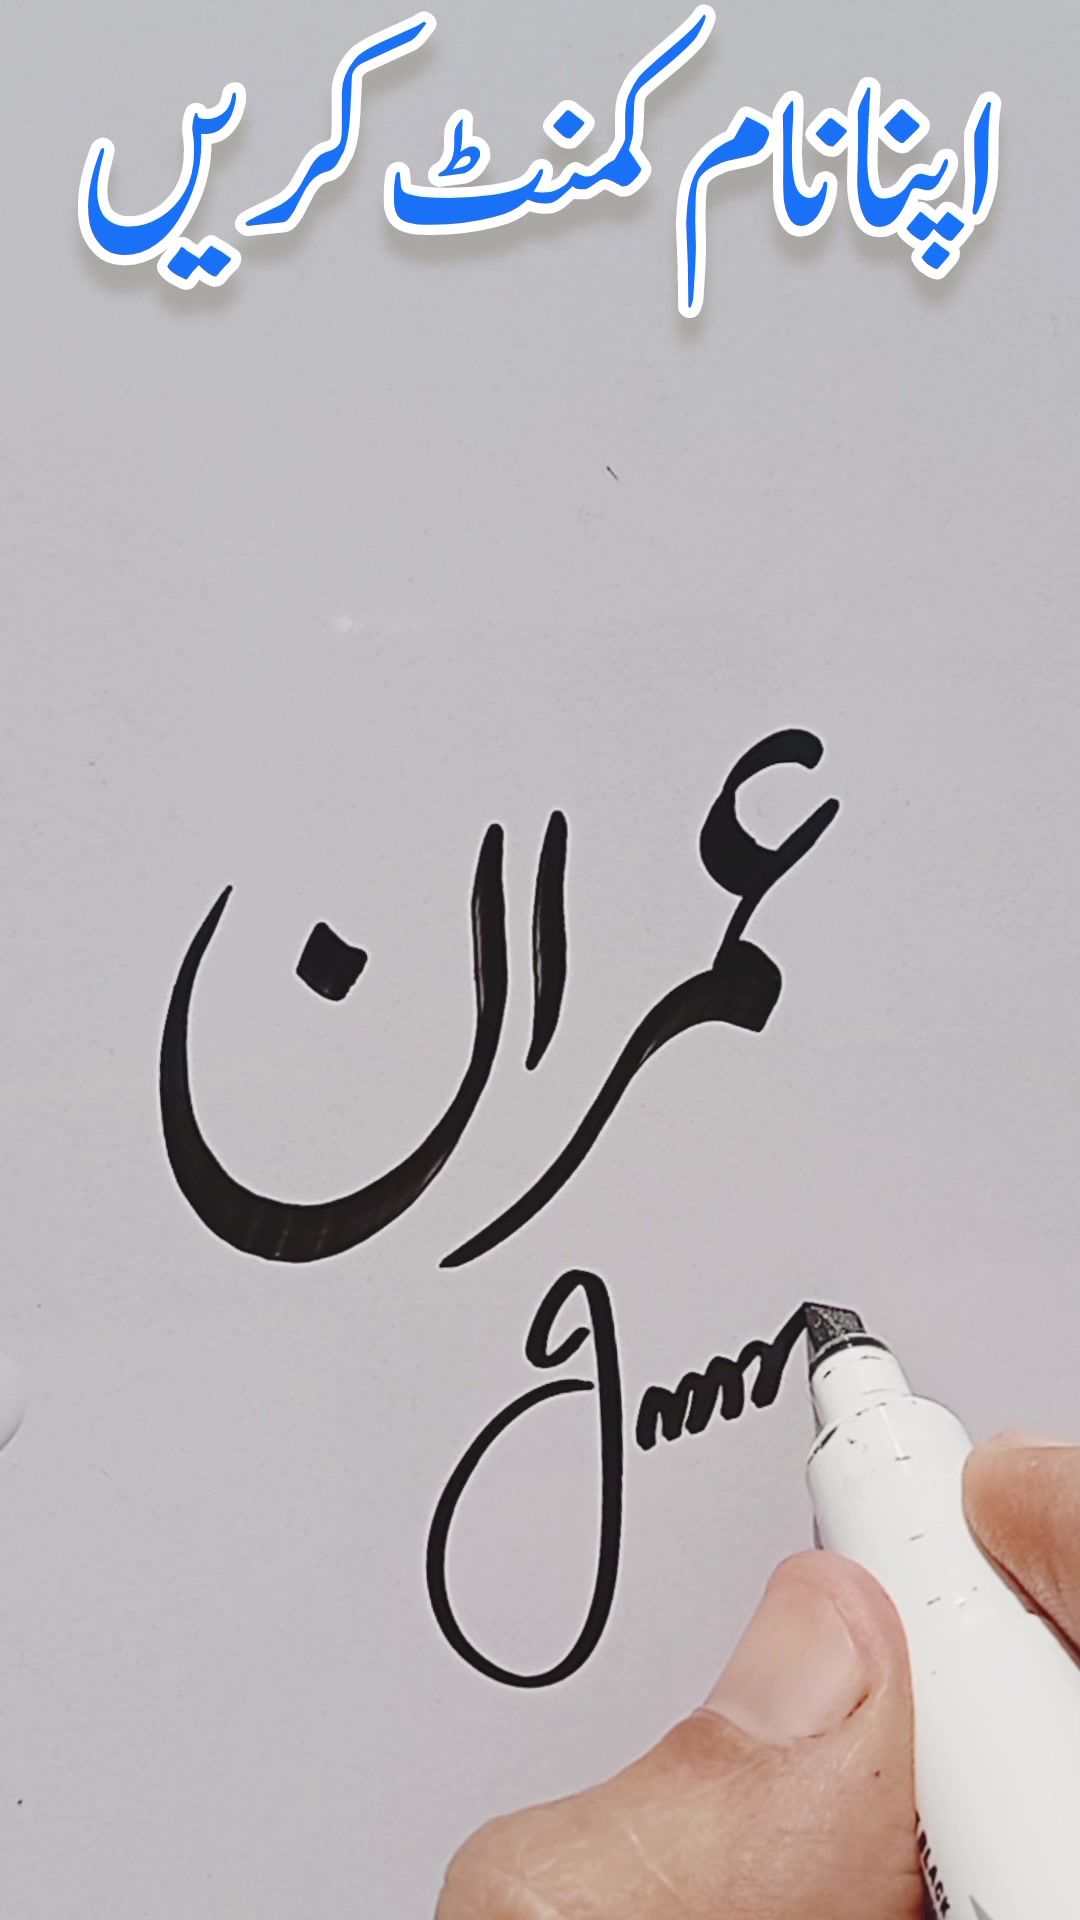 اپنا نام کمنٹ کریں
عمران
BLACK